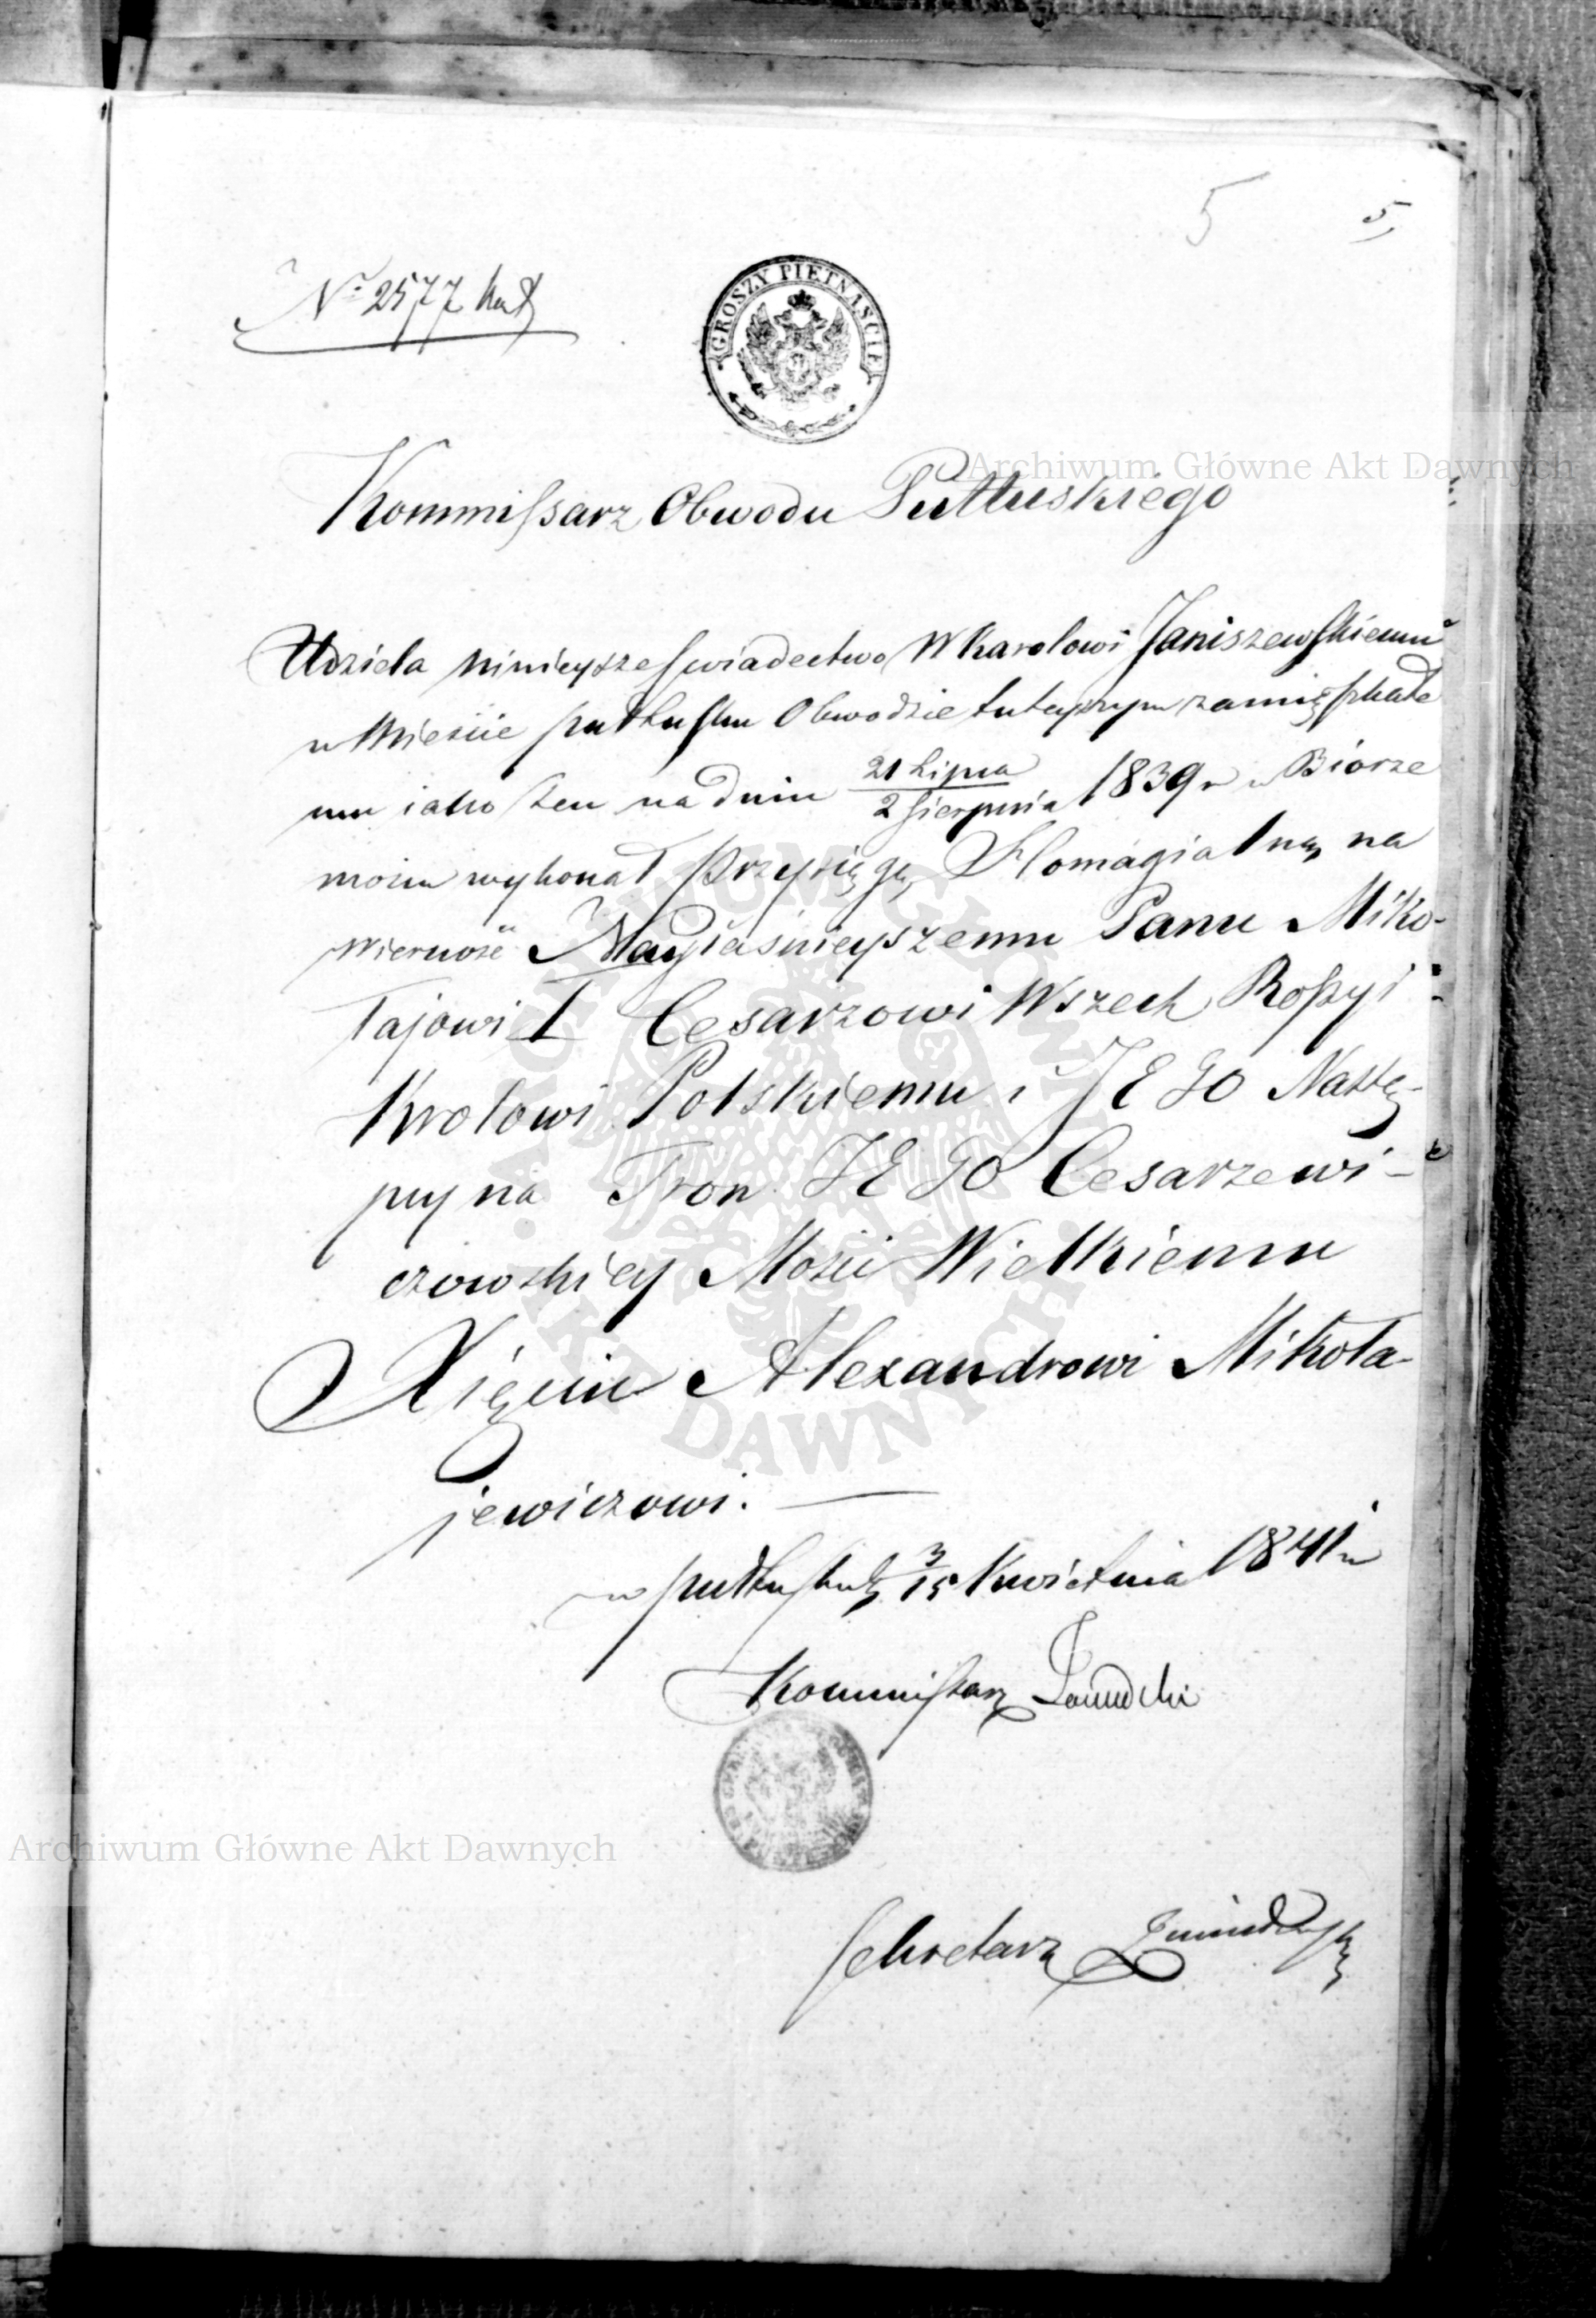 5 5
Nr 2577
GROSZY PIETNAŚCIE
Kommissarz Obwodu Pułtuskiego
Udziela ninieysze swiadectwo W Karolowi Janiszewskiemu
w Mieście Pułtusku Obwodzie tuteyszym zamięszkałe
mu iako ten na dniu 21 Lipca / 2 Sierpnia 1839 r w Biórze
moim wykonał Przysięgę Homagialną na
wierność Nayiaśnieyszemu Panu Miko-
łajowi I Cesarzowi Wszech Rossyi
Krolowi Polskiemu i JEGO Nastę-
pcy na Tron JEGO Cesarzewi-
czowskiey Mości Wielkiemu
Xięciu Alexandrowi Mikoła-
jewiczowi. —
w Pułtusku 3/15 Kwietnia 1841 r
Kommissarz
Sekretarz
Archiwum Główne Akt Dawnych
Archiwum Główne Akt Dawnych
ARCHIWUM GŁÓWNE AKT DAWNYCH